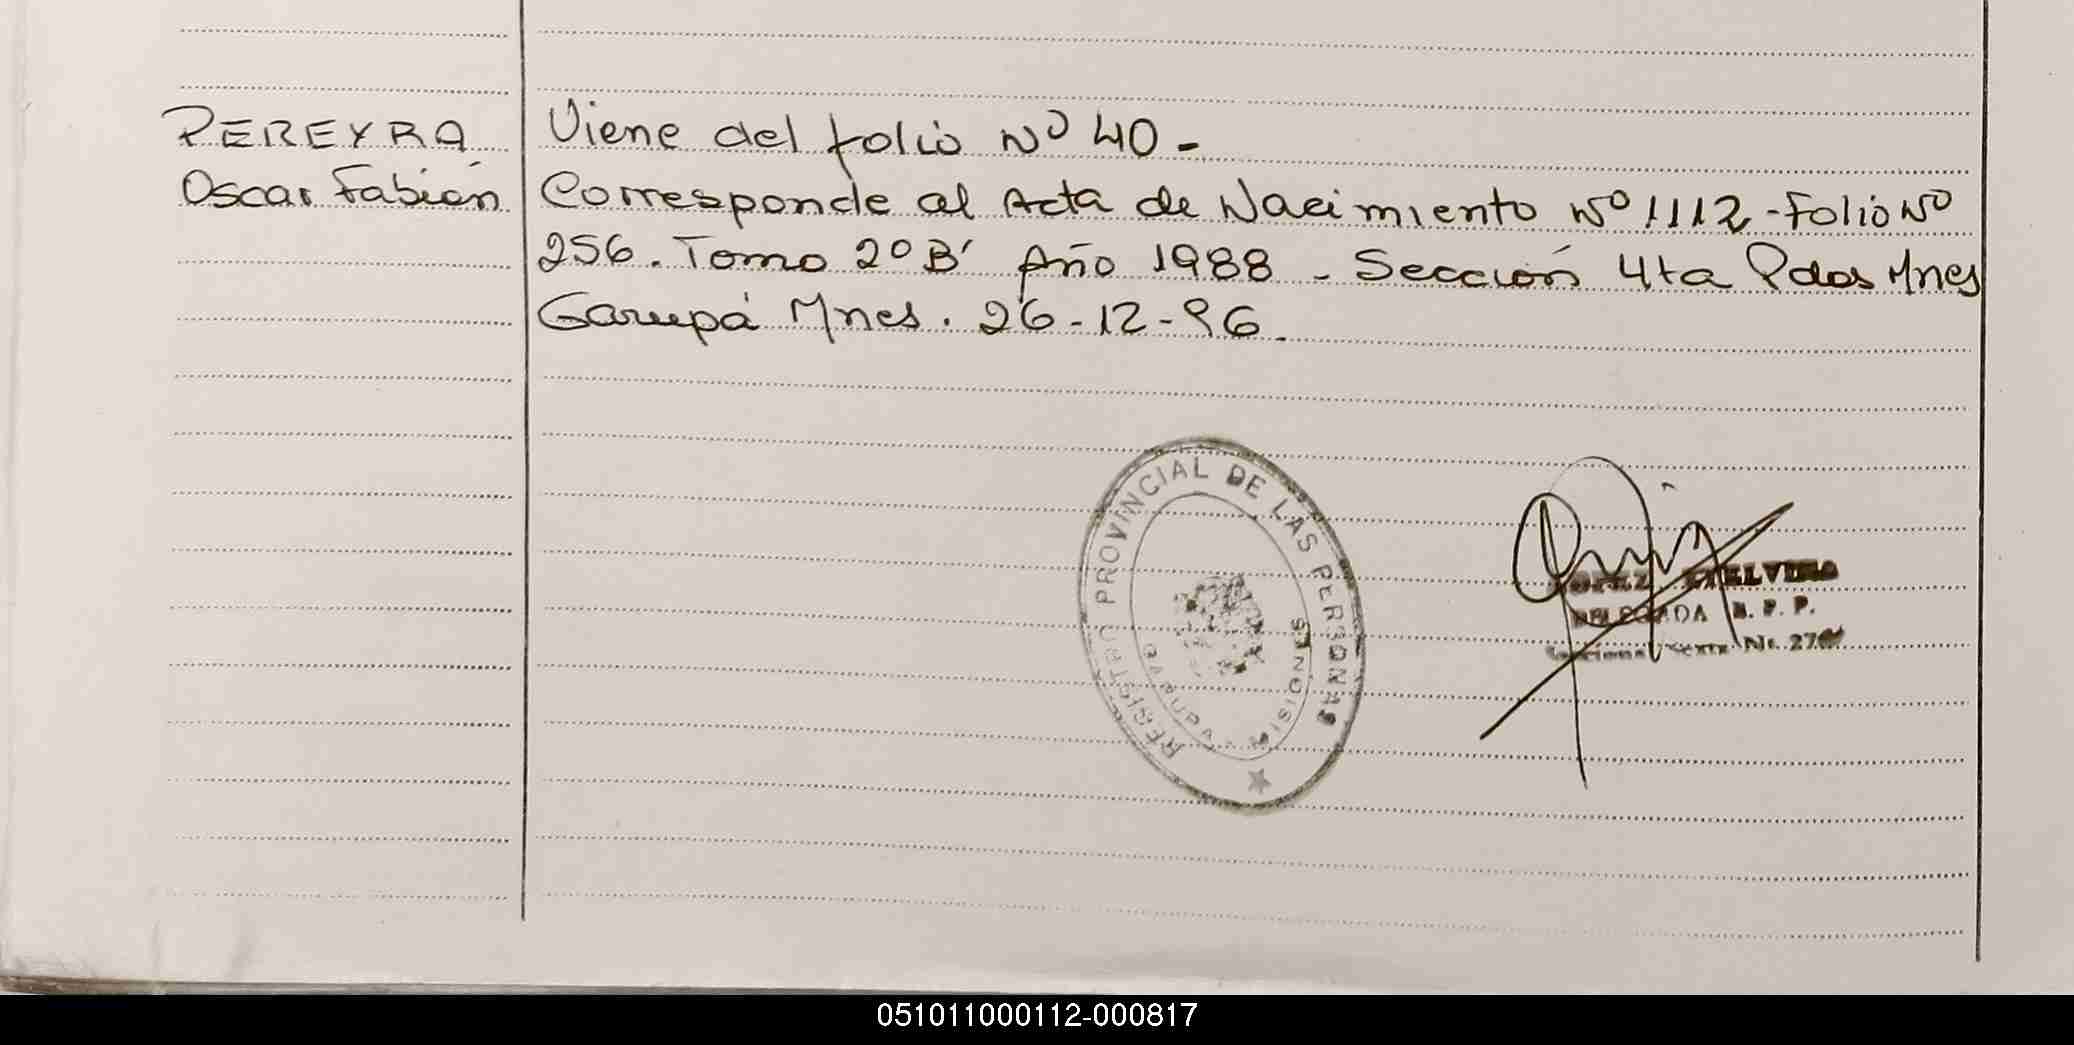 PEREYRA
Oscar Fabián
Viene del folio Nº 40 -
Corresponde al Acta de Nacimiento Nº 1112 - Folio Nº
256. Tomo 2º B' Año 1988 - Sección 4ta Pdas Mnes
Garupá Mnes. 26-12-96.
REGISTRO PROVINCIAL DE LAS PERSONAS
GARUPA - MISIONES
LOPEZ ETELVINA
DELEGADA R. P. P.
051011000112-000817